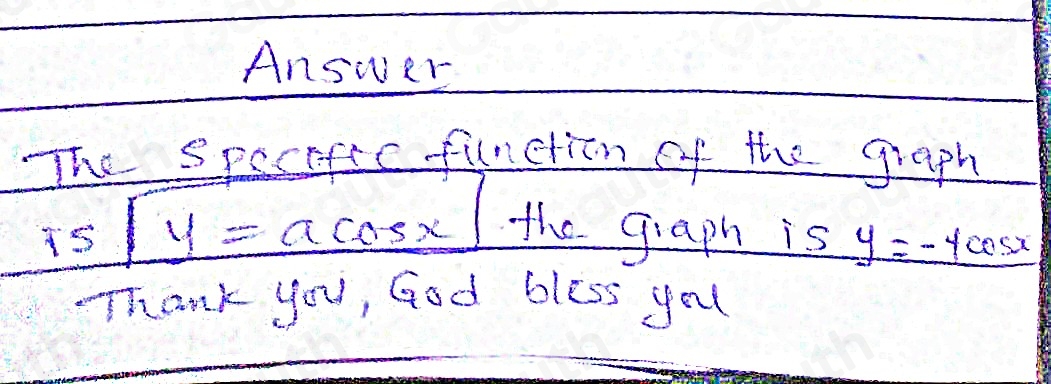 Answer
The specific function of the graph
is y = a cosx the graph is y = -4cosx
Thank you, God bless you